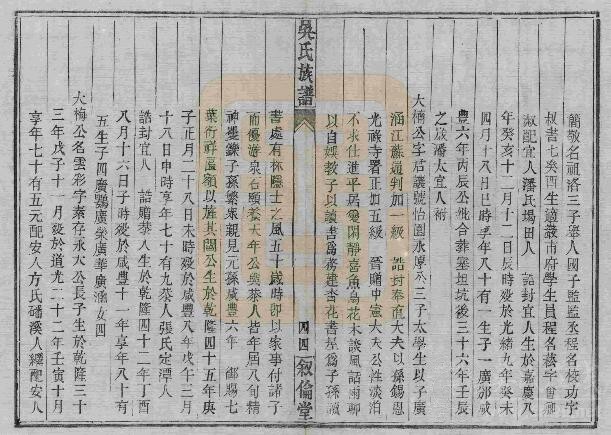 簡敬名祖洛三子宓人國子監監丞程名校功字
叔書乜癸酉生適叢市府學生員程名藝字會卿
淑配宜人潘氏塲田人 誥封宜人生於嘉慶八
年癸亥十二月十二日辰時歿於光緒九年癸未
四月十八日巳時享年八十有一生子一廣郷咸
豐六年丙辰公妣合葬壟坦坑後三十六年壬辰
之歲潘太宜人祔
大楠公字启讓號怡園永厚公三子太學生以子廣
涵江蘇通判加一級 誥封奉直大夫以孫錫恩
光祿寺署正加五級 晉贈中憲大夫公性淡泊
不求仕進平居愛閑靜喜魚鳥花木談風話雨聊
以自娛教子以讀書為務建杏花書屋爲子孫讀
書處有林隱士之風五十歲時即以家事付諸子
而優游泉石頤養天年公與恭人皆年届八旬精
神雙鑠子孫繁衆親見元孫咸豐六年 御賜七
葉衍祥匾額以旌其閭公生於乾隆四十五年庚
子正月二十八日未時歿於咸豐八年戊午三月
十八日申時享年七十有九恭人張氏定潭人
誥封宜人 誥贈恭人生於乾隆四十二年丁酉
八月十六日子時歿於咸豐十一年享年八十有
五生子四廣鸚廣榮廣華廣涵女四
大梅公名雲彩字葉存永大公長子生於乾隆三十
三年戊子十一月歿於道光二十二年壬寅十月
享年七十有五元配安人方氏磻溪人繼配安人
吳氏族譜
四四
叙倫堂